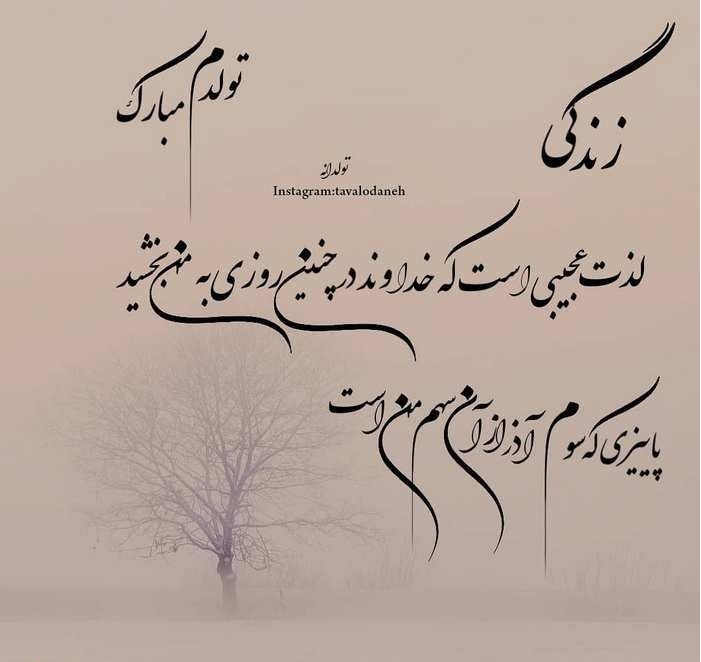 زندگی
تولدم مبارک
تولدانه
Instagram:tavalodaneh
لذت عجیبی است که خداوند در چنین روزی به من بخشید
پاییزی که سوم آذر از آن سهم من است